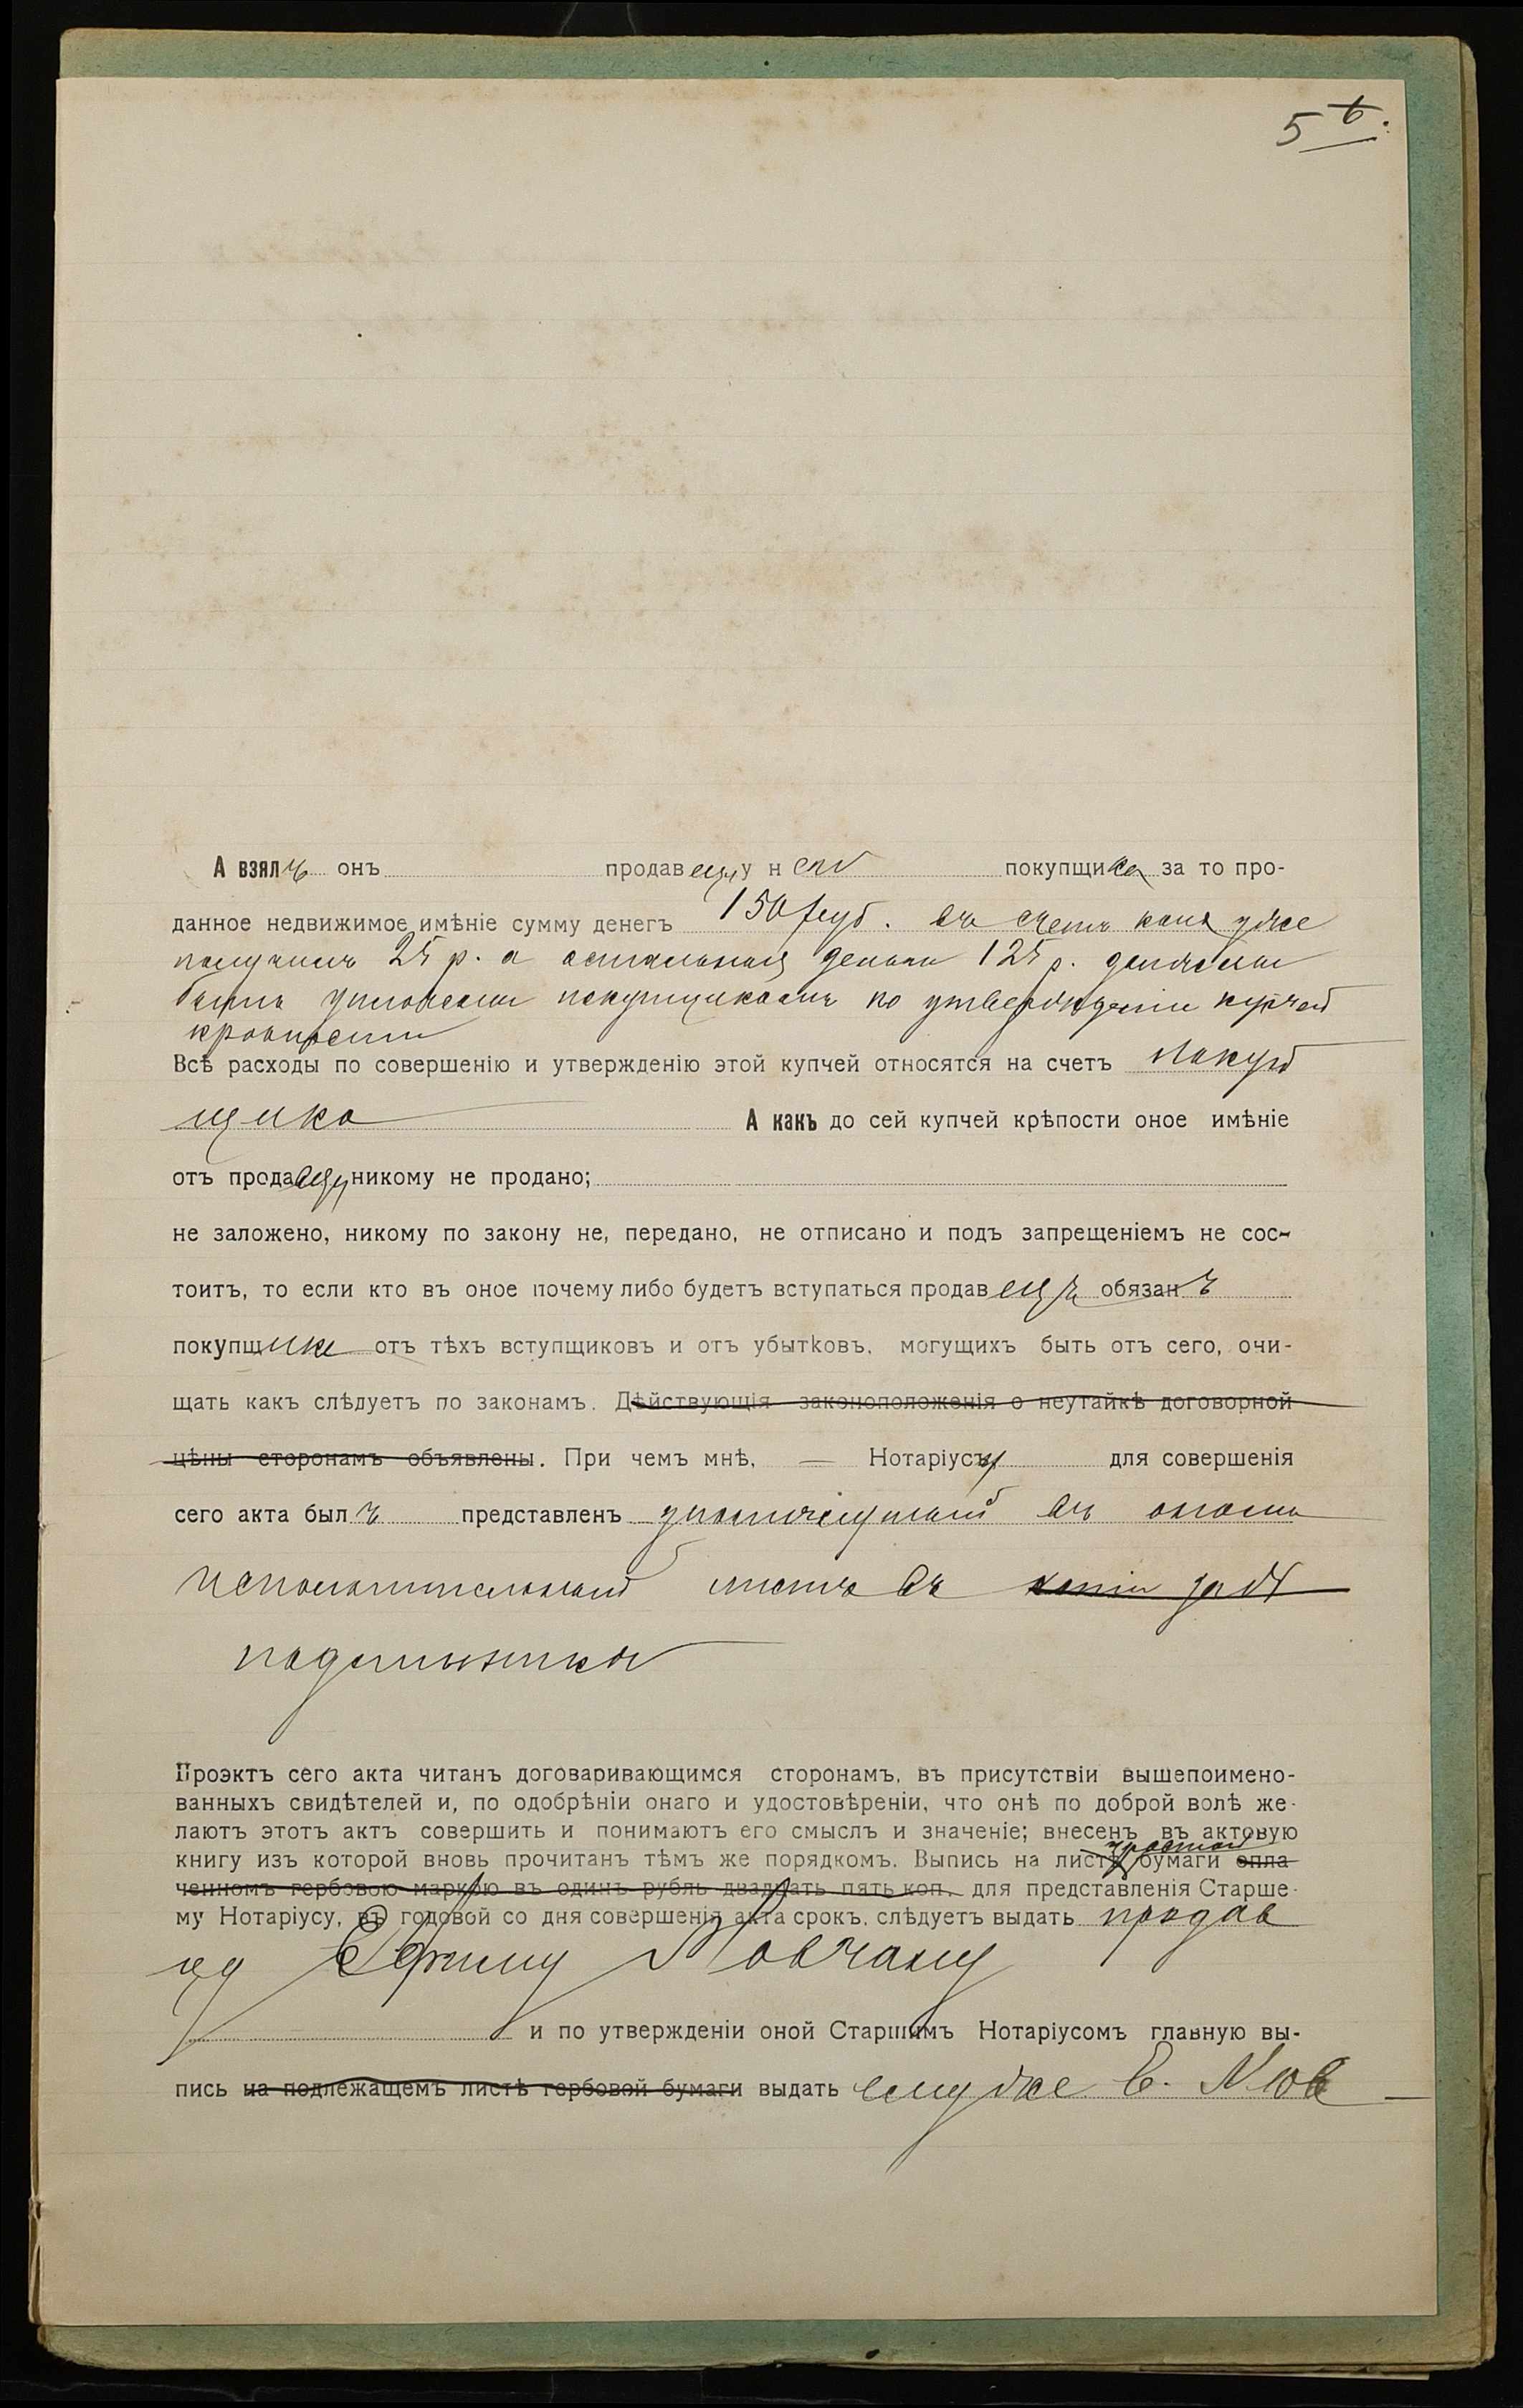 5
А взялъ онъ продавецъ у него покупщика за то про-
данное недвижимое имѣніе сумму денегъ 150 руб. въ счетъ коихъ уже
получилъ 25 р. а остальныя деньги 125 р. должны
быть уплочены покупщикомъ по утвержденіи купчей
крѣпости
Всѣ расходы по совершенію и утвержденію этой купчей относятся на счетъ покуп
щика А какъ до сей купчей крѣпости оное имѣніе
отъ продавца никому не продано;
не заложено, никому по закону не, передано, не отписано и подъ запрещеніемъ не сос-
тоитъ, то если кто въ оное почему либо будетъ вступаться продавецъ обязанъ
покупщика отъ тѣхъ вступщиковъ и отъ убытковъ, могущихъ быть отъ сего, очи-
щать какъ слѣдуетъ по законамъ. Дѣйствующія законоположенія о неутайкѣ договорной
цѣны сторонамъ объявлены. При чемъ мнѣ, — Нотаріусу для совершенія
сего акта былъ представленъ въ
исполнительный листъ въ копіи
подлинникѣ
Проэктъ сего акта читанъ договаривающимся сторонамъ, въ присутствіи вышепоимено-
ванныхъ свидѣтелей и, по одобрѣніи онаго и удостовѣреніи, что онѣ по доброй волѣ же-
лаютъ этотъ актъ совершить и понимаютъ его смыслъ и значеніе; внесенъ въ актовую
простой
книгу изъ которой вновь прочитанъ тѣмъ же порядкомъ. Выпись на листѣ бумаги опла
ченномъ гербовою маркою въ одинъ рубль двадцать пять коп. для представленія Старше-
му Нотаріусу, въ годовой со дня совершенія акта срокъ, слѣдуетъ выдать продав
цу Ефиму Ковчану
и по утвержденіи оной Старшимъ Нотаріусомъ главную вы-
пись на подлежащемъ листѣ гербовой бумаги выдать ему же Е.